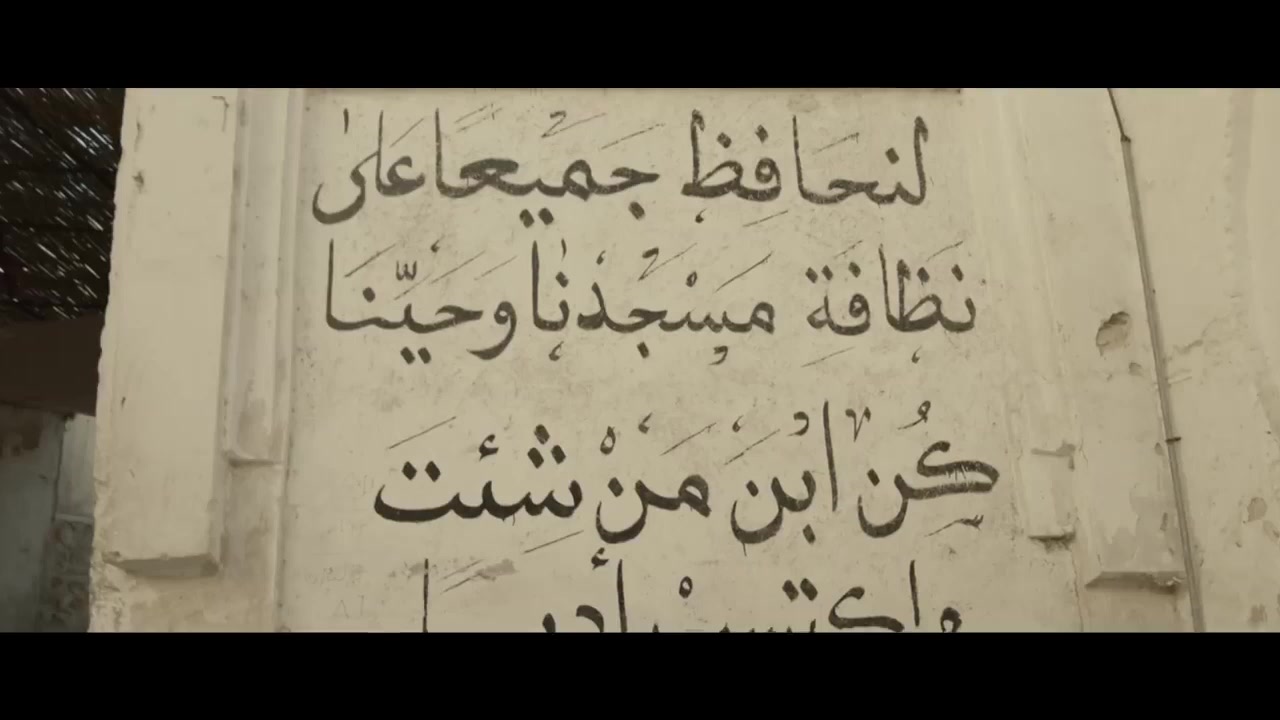 لنحافِظ جَميعًا عَلى
نَظافَةِ مَسْجِدِنا وَحَيّنَا
كُن ابْنَ مَنْ شئتَ
واكتسبْ أدبًا